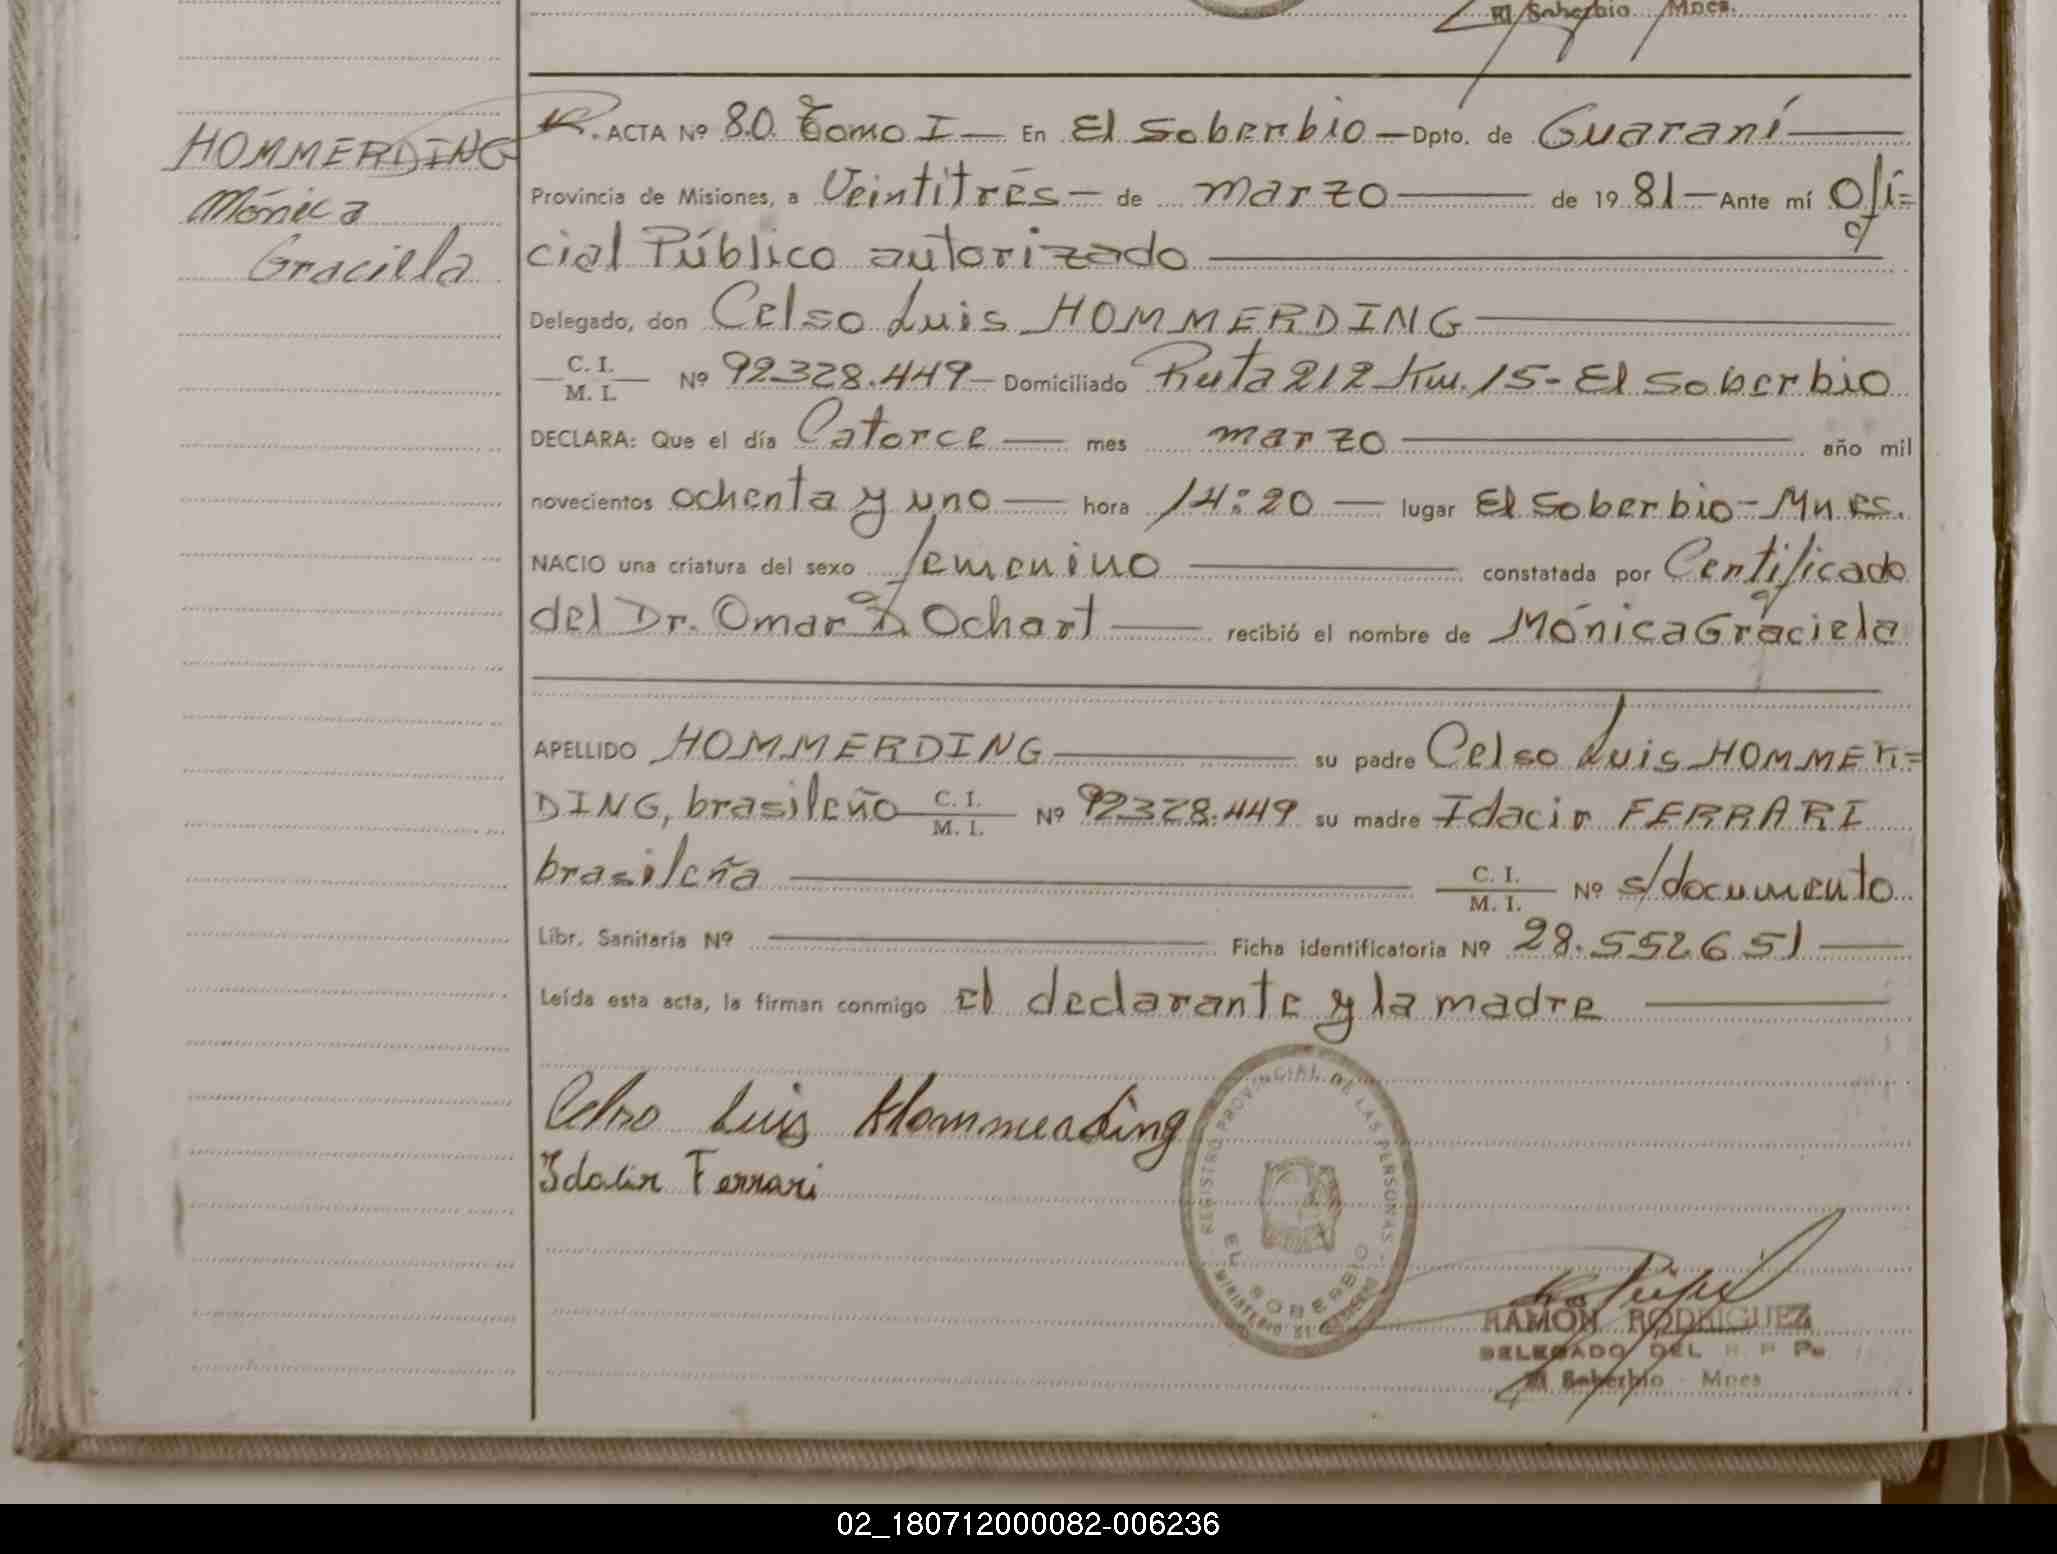 El Soberbio Mnes.
HOMMERDING
Mónica
Graciela
ACTA Nº 80 Tomo I — En El Soberbio — Dpto. de Guaraní
Provincia de Misiones, a Veintitrés — de marzo — de 1981 — Ante mí Ofi=
cial Público autorizado
Delegado, don Celso Luis HOMMERDING
C. I.
M. I. Nº 92328.449 — Domiciliado Ruta 212 Km. 15 - El Soberbio
DECLARA: Que el día Catorce — mes marzo — año mil
novecientos ochenta y uno — hora 14:20 — lugar El Soberbio - Mnes.
NACIO una criatura del sexo femenino — constatada por Certificado
del Dr. Omar D. Ochart — recibió el nombre de Mónica Graciela
APELLIDO HOMMERDING — su padre Celso Luis HOMMER=
DING, brasileño C. I.
M. I. Nº 92328.449 su madre Idacir FERRARI
brasileña — C. I.
M. I. Nº s/documento
Libr. Sanitaria Nº — Ficha identificatoria Nº 28.552651
Leída esta acta, la firman conmigo el declarante y la madre
Celso Luis Hommerding
Idalir Ferrari
REGISTRO PROVINCIAL DE LAS PERSONAS
EL SOBERBIO
MINISTERIO DE GOBIERNO
RAMÓN RODRIGUEZ
DELEGADO DEL R P Ps
El Soberbio - Mnes
02_180712000082-006236